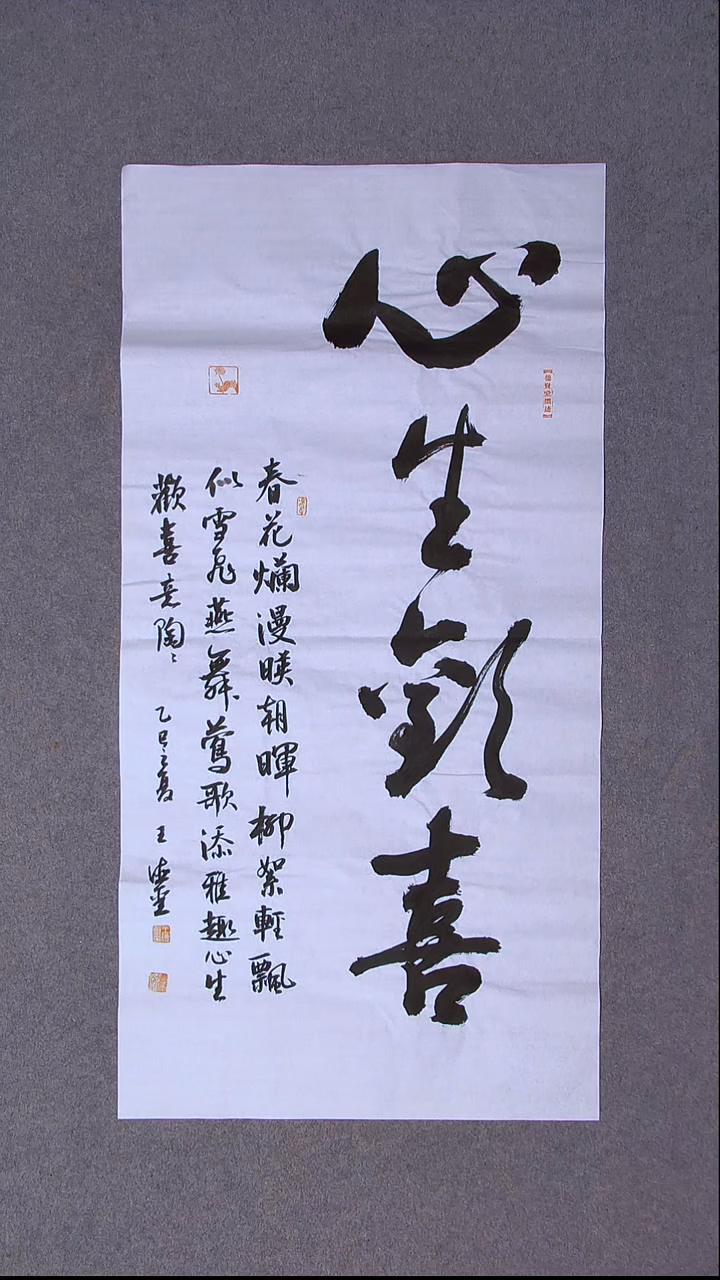 心生歡喜
春花爛漫映朝暉柳絮輕飄
似雪飛燕舞鶯歌添雅趣心生
歡喜意陶〻 乙巳之夏 王